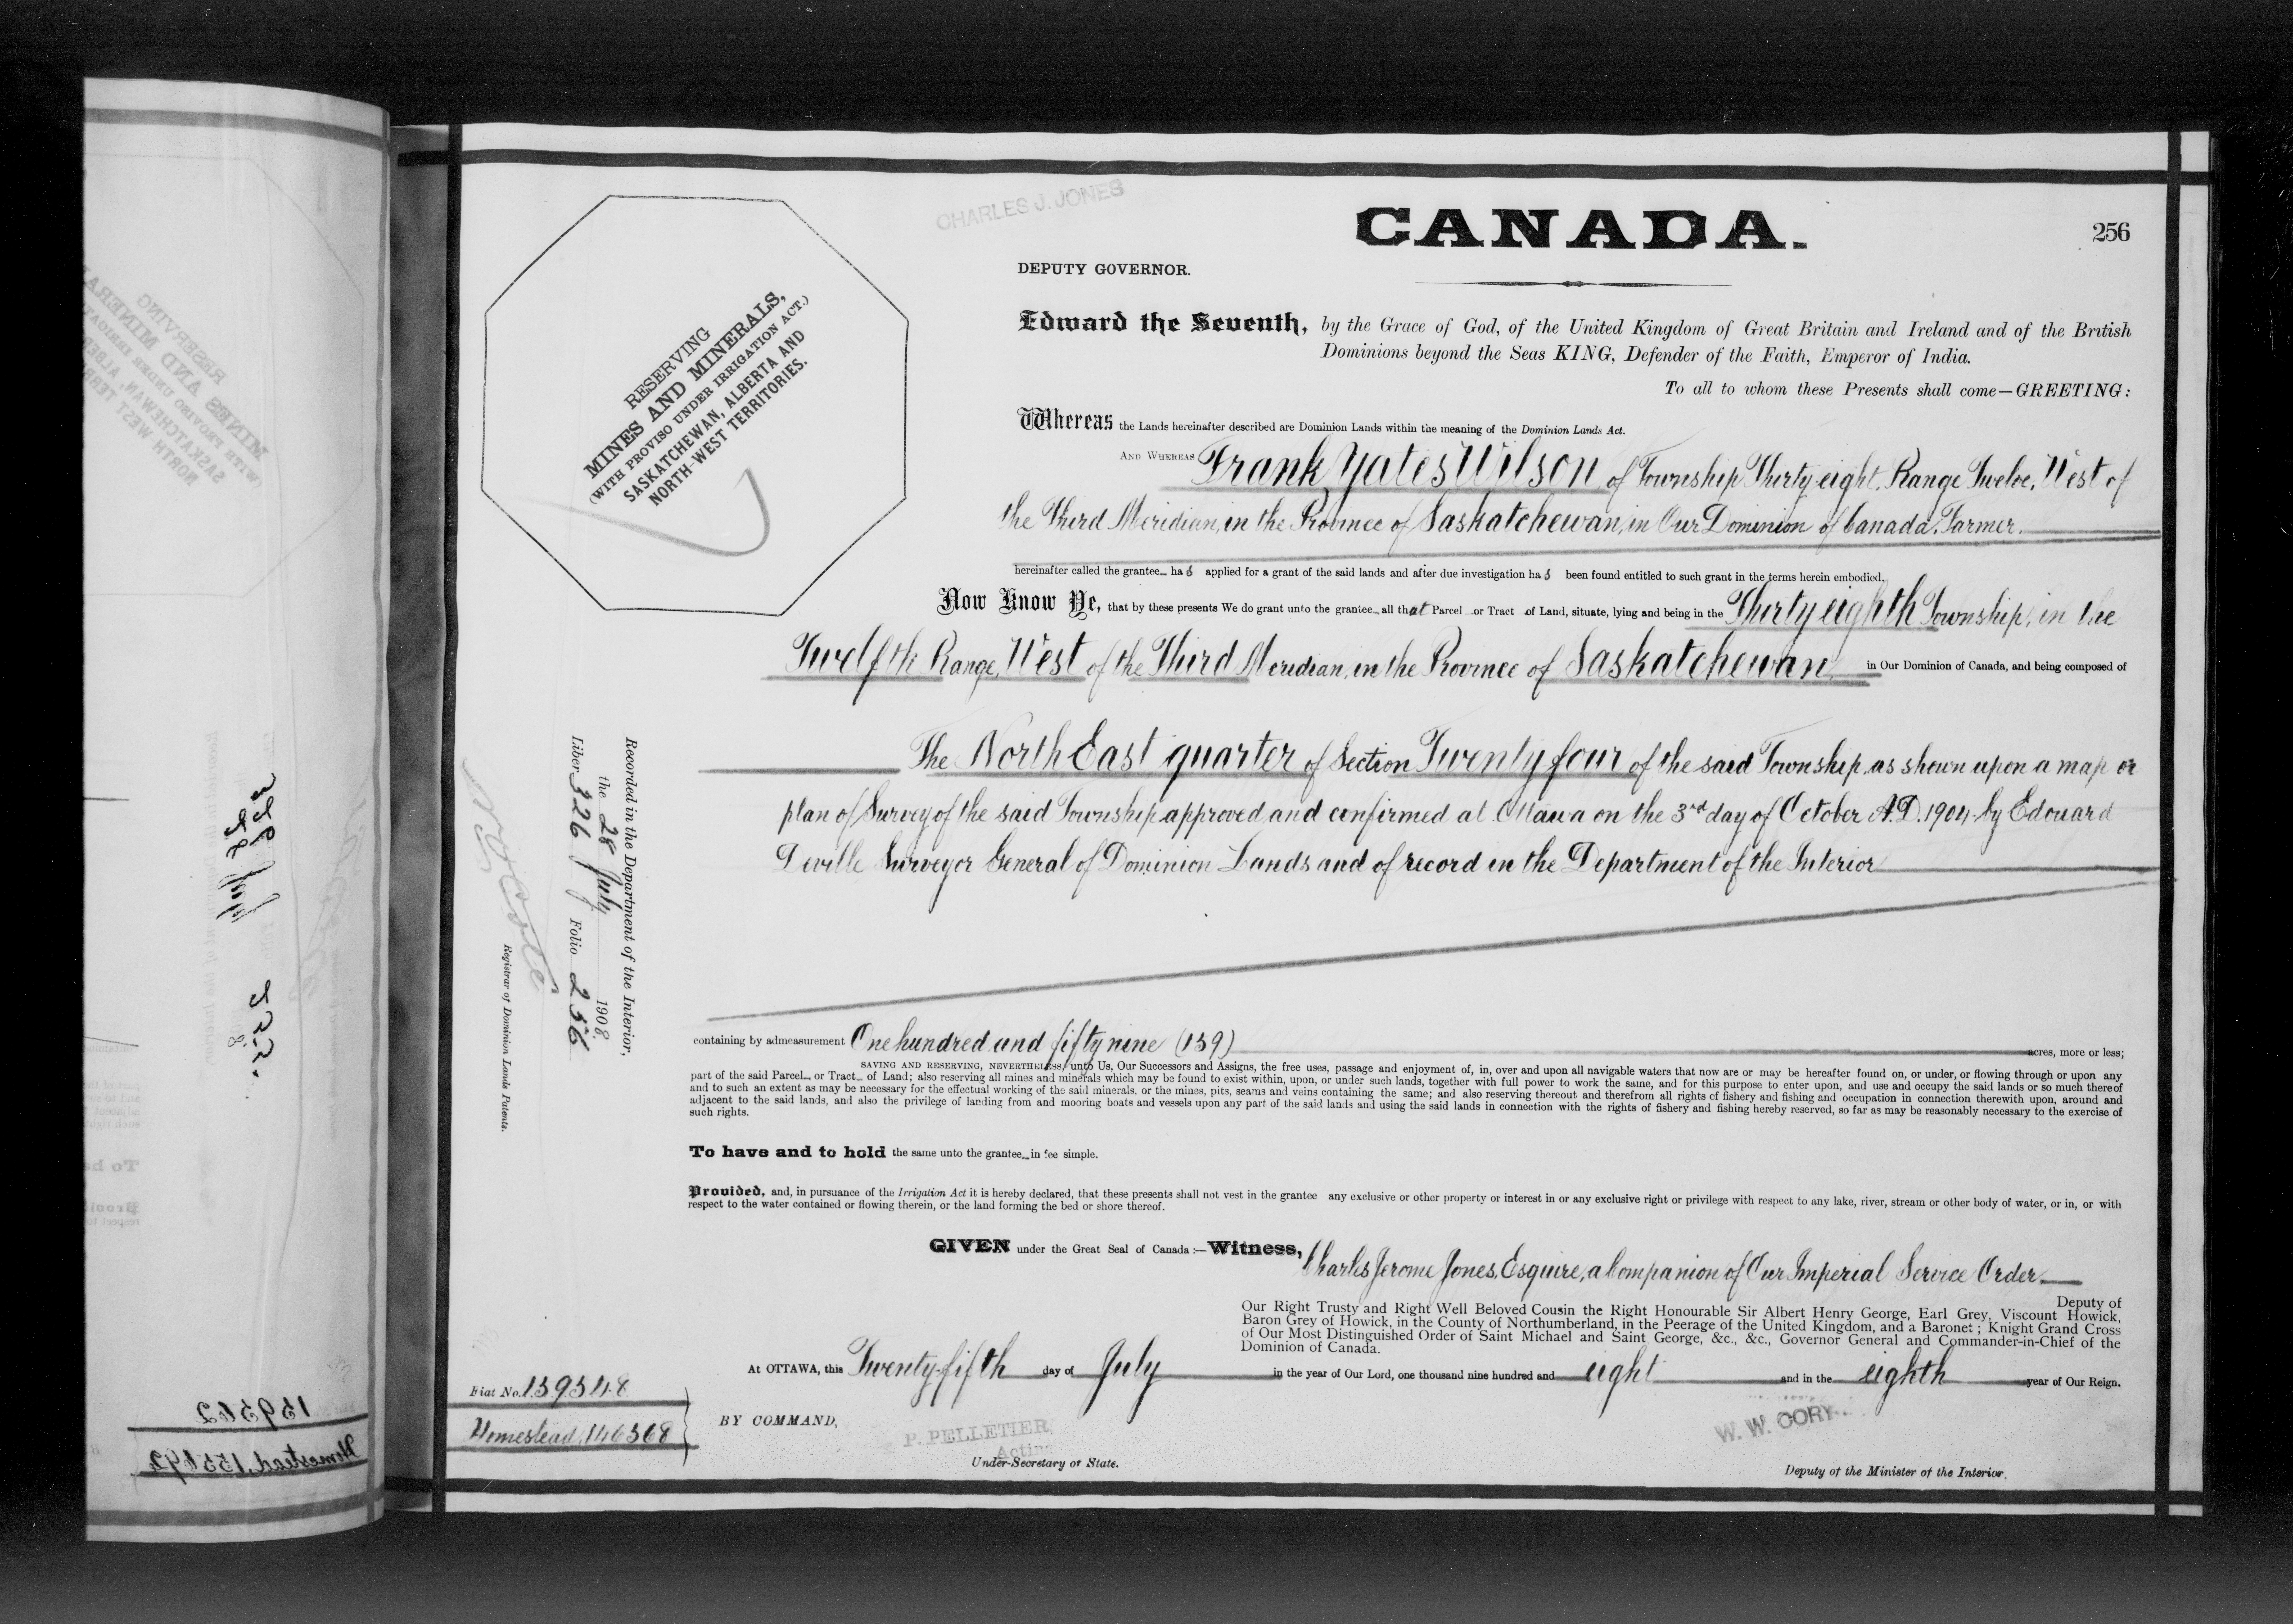 CHARLES J. JONES
CANADA.
256
DEPUTY GOVERNOR.
RESERVING
MINES AND MINERALS,
(WITH PROVISO UNDER IRRIGATION ACT.)
SASKATCHEWAN, ALBERTA AND
NORTH-WEST TERRITORIES.
Edward the Seventh, by the Grace of God, of the United Kingdom of Great Britain and Ireland and of the British
Dominions beyond the Seas KING, Defender of the Faith, Emperor of India.
To all to whom these Presents shall come—GREETING:
Whereas the Lands hereinafter described are Dominion Lands within the meaning of the Dominion Lands Act.
AND WHEREAS Frank Yates Wilson of Township Thirty eight, Range Twelve, West of
the Third Meridian, in the Province of Saskatchewan, in Our Dominion of Canada. Farmer.
hereinafter called the grantee has applied for a grant of the said lands and after due investigation has been found entitled to such grant in the terms herein embodied.
Now Know Ye, that by these presents We do grant unto the grantee all that Parcel or Tract of Land, situate, lying and being in the Thirty eighth Township, in the
Twelfth Range, West of the Third Meridian, in the Province of Saskatchewan, in Our Dominion of Canada, and being composed of
The North East quarter of Section Twenty four of the said Township, as shewn upon a map or
plan of Survey of the said Township approved and confirmed at Ottawa on the 3rd day of October A.D. 1904 by Edouard
Deville Surveyor General of Dominion Lands and of record in the Department of the Interior
Recorded in the Department of the Interior,
the 28 July 1908.
Liber 326 Folio 256
Registrar of Dominion Lands Patents.
containing by admeasurement One hundred and fifty nine (159) acres, more or less;
SAVING AND RESERVING, NEVERTHELESS, unto Us, Our Successors and Assigns, the free uses, passage and enjoyment of, in, over and upon all navigable waters that now are or may be hereafter found on, or under, or flowing through or upon any
part of the said Parcel or Tract of Land; also reserving all mines and minerals which may be found to exist within, upon, or under such lands, together with full power to work the same, and for this purpose to enter upon, and use and occupy the said lands or so much thereof
and to such an extent as may be necessary for the effectual working of the said minerals, or the mines, pits, seams and veins containing the same; and also reserving thereout and therefrom all rights of fishery and fishing and occupation in connection therewith upon, around and
adjacent to the said lands, and also the privilege of landing from and mooring boats and vessels upon any part of the said lands and using the said lands in connection with the rights of fishery and fishing hereby reserved, so far as may be reasonably necessary to the exercise of
such rights.
To have and to hold the same unto the grantee in fee simple.
Provided, and, in pursuance of the Irrigation Act it is hereby declared, that these presents shall not vest in the grantee any exclusive or other property or interest in or any exclusive right or privilege with respect to any lake, river, stream or other body of water, or in, or with
respect to the water contained or flowing therein, or the land forming the bed or shore thereof.
GIVEN under the Great Seal of Canada :— Witness, Charles Jerome Jones, Esquire, a Companion of Our Imperial Service Order
Deputy of
Our Right Trusty and Right Well Beloved Cousin the Right Honourable Sir Albert Henry George, Earl Grey, Viscount Howick,
Baron Grey of Howick, in the County of Northumberland, in the Peerage of the United Kingdom, and a Baronet ; Knight Grand Cross
of Our Most Distinguished Order of Saint Michael and Saint George, &c., &c., Governor General and Commander-in-Chief of the
Dominion of Canada.
At OTTAWA, this Twenty-fifth day of July in the year of Our Lord, one thousand nine hundred and eight and in the eighth year of Our Reign.
Fiat No. 159548
Homestead, 146368
BY COMMAND,
P. PELLETIER,
Acting
Under-Secretary of State.
W. W. CORY
Deputy of the Minister of the Interior.
159562
Homestead, 155492